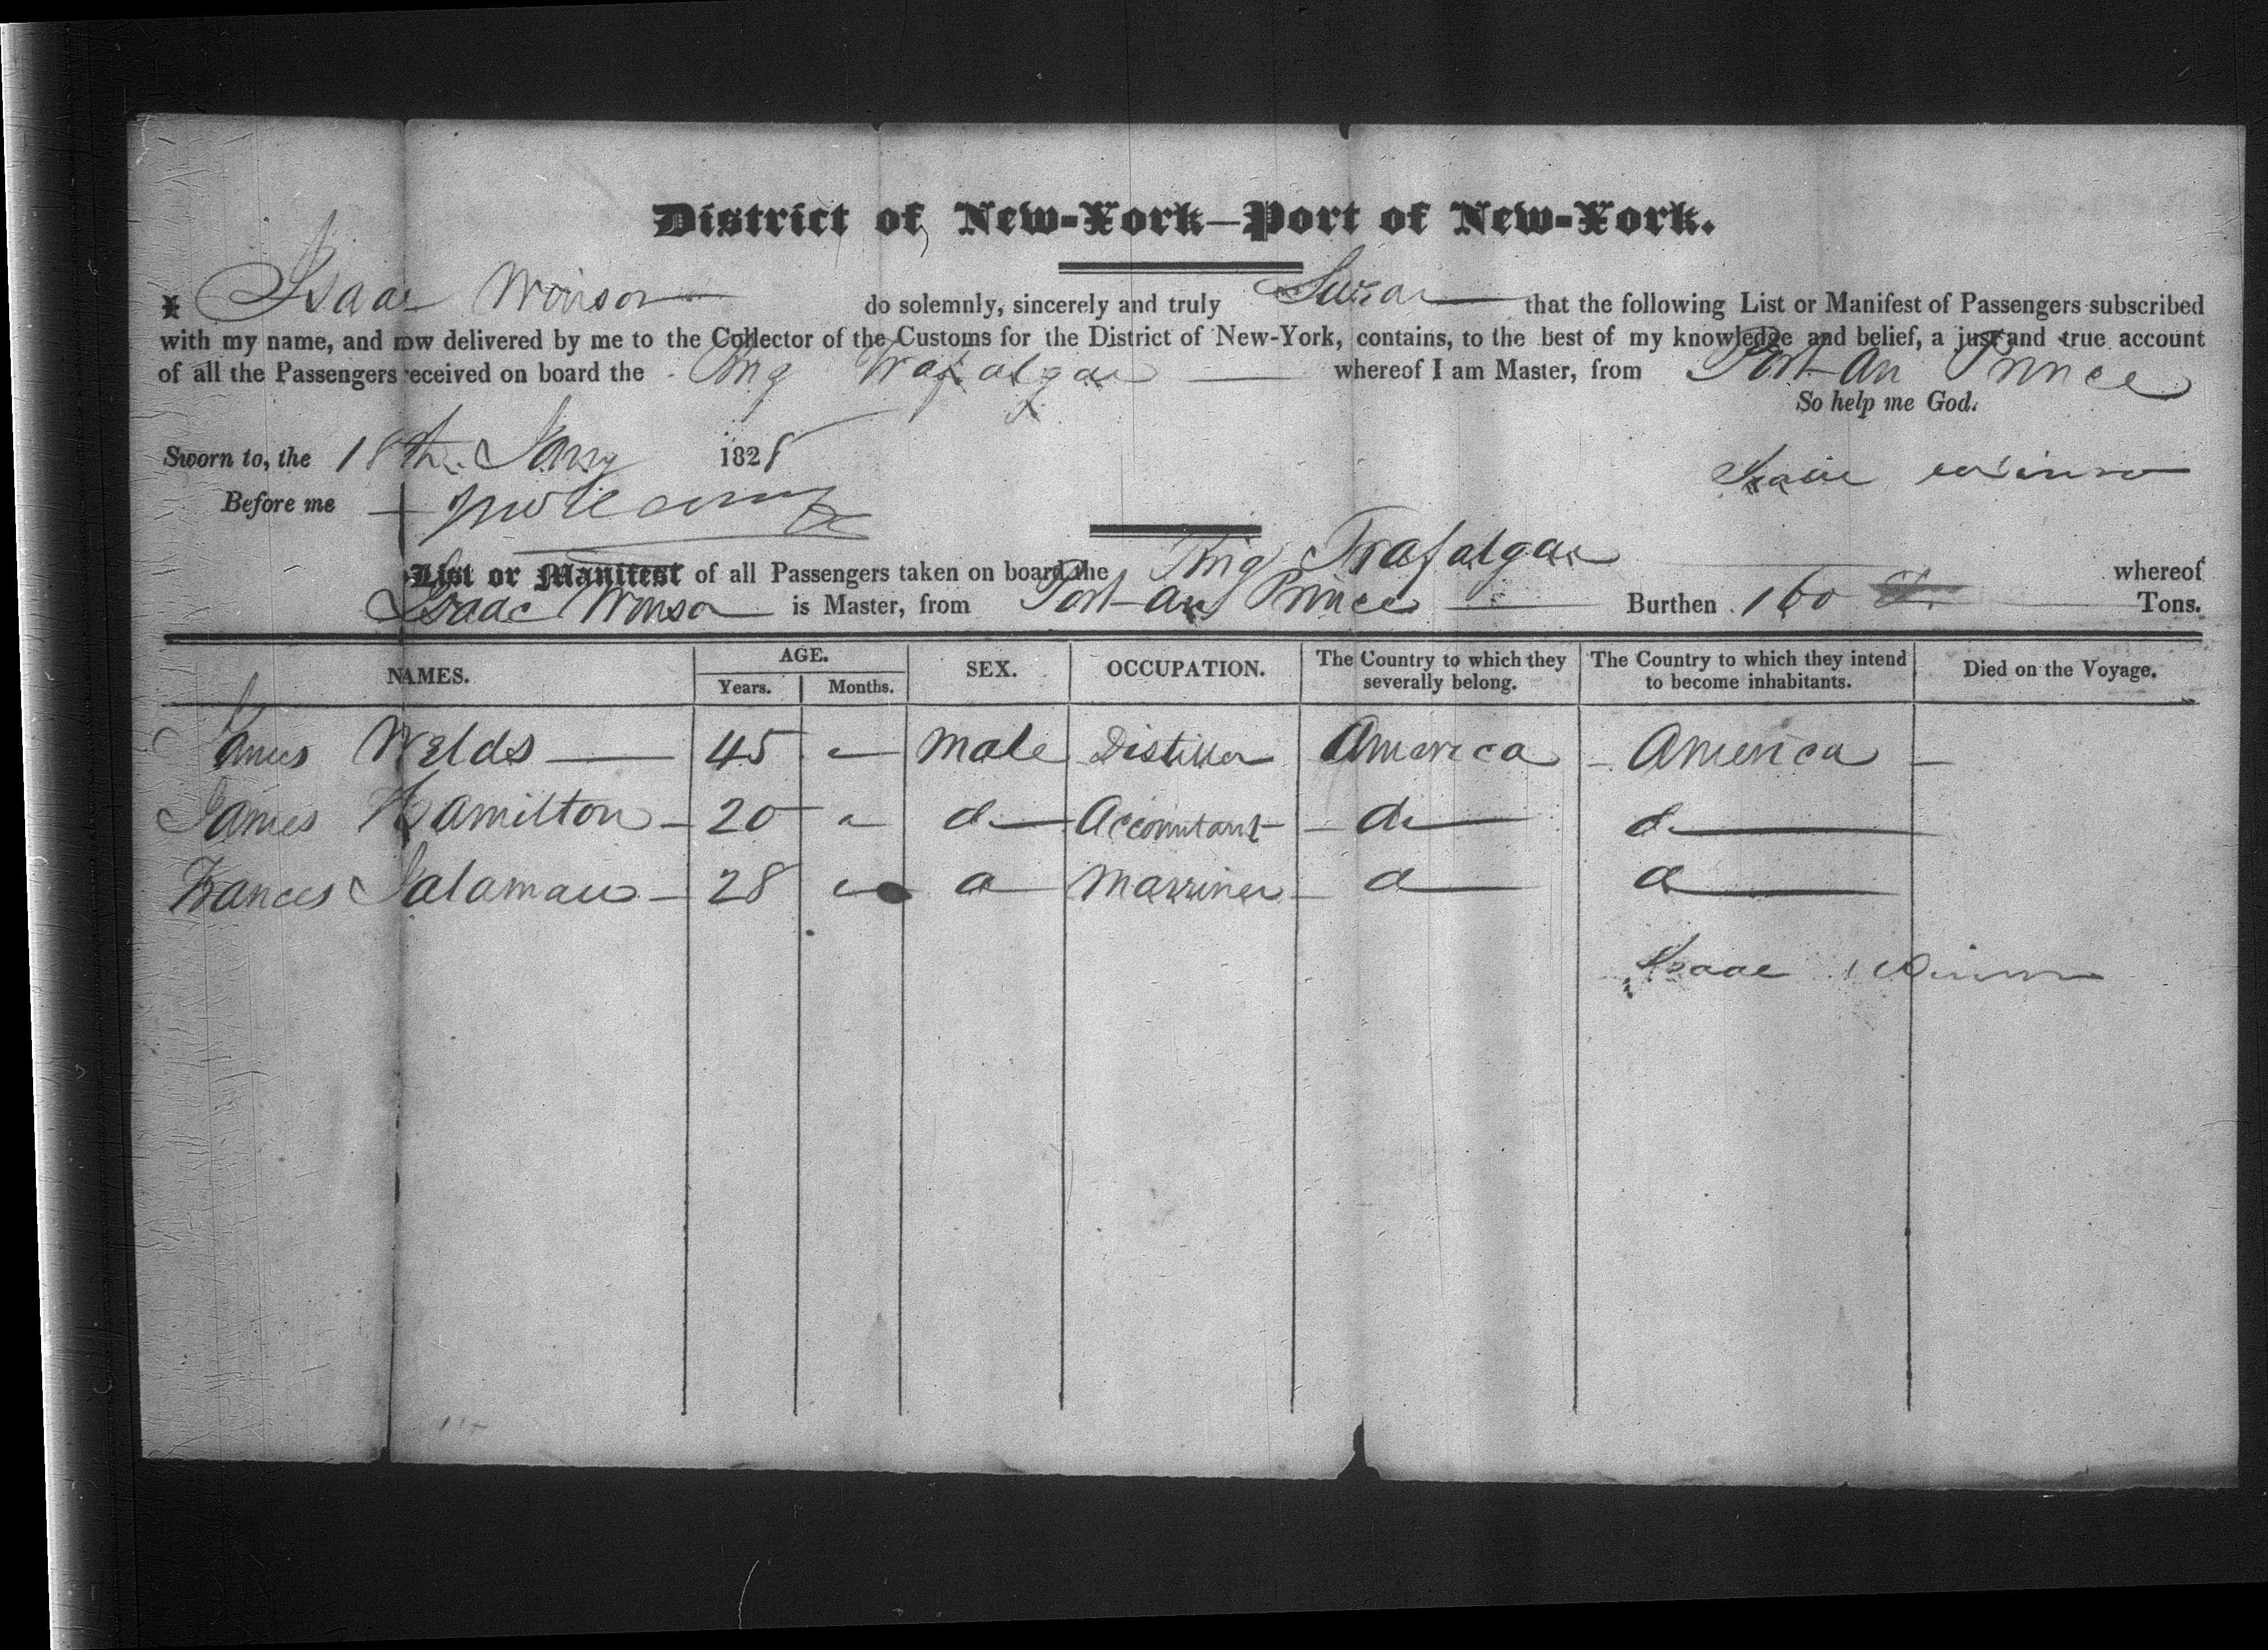 District of New-York—Port of New-York.
I Isaac Winsor do solemnly, sincerely and truly Swear that the following List or Manifest of Passengers subscribed
with my name, and now delivered by me to the Collector of the Customs for the District of New-York, contains, to the best of my knowledge and belief, a just and true account
of all the Passengers received on board the Brig Trafalgar whereof I am Master, from Port-au Prince
So help me God.
Sworn to, the 18th Jany 1828
Isaac Winsor
Before me
List or Manifest of all Passengers taken on board the Brig Trafalgar whereof
Isaac Winsor is Master, from Port-au Prince Burthen 160 Tons.
NAMES. AGE. SEX. OCCUPATION. The Country to which they severally belong. The Country to which they intend to become inhabitants. Died on the Voyage.
Years. Months.
James Welds 45 male Distiller America America
James Hamilton 20 do Accountant do do
Frances 28 do Marriner do do
Isaac Winsor